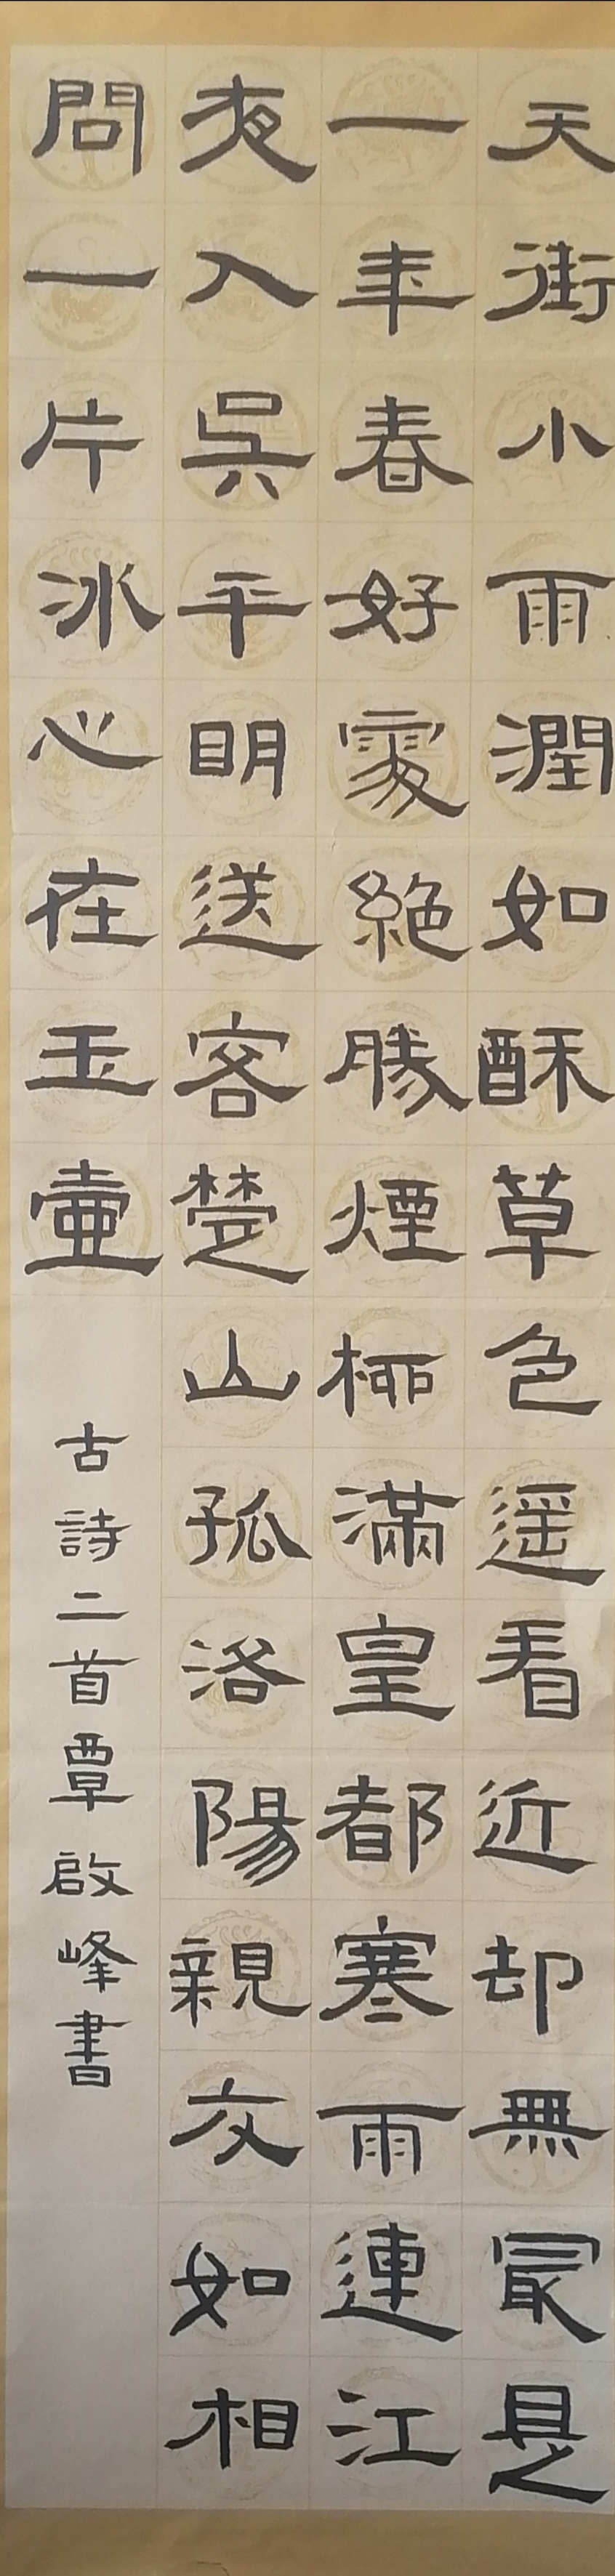 天街小雨潤如酥草色遥看近却無最是
一年春好處絶勝煙柳滿皇都寒雨連江
夜入吳平明送客楚山孤洛陽親友如相
問一片冰心在玉壺
古詩二首覃啟峰書